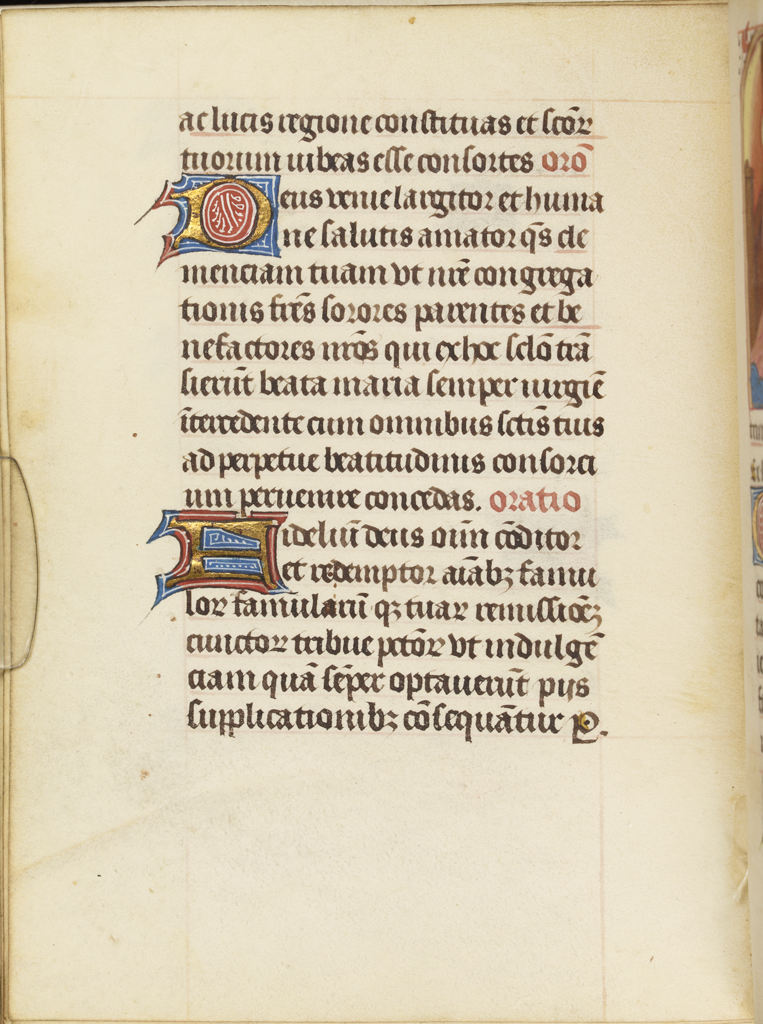 ac lucis regione constituas et scōꝝ
tuorum iubeas esse consortes orō
Deus venie largitor et huma
ne salutis amator q̄s cle
menciam tuam vt nr̄e congrega
tionis fr̄es sorores parentes et be
nefactores nr̄os qui ex hoc sclō trā
sierūt beata maria semper uirgiē
ītercedente cum omnibus sctīs tuis
ad perpetue beatitudinis consorci
um peruenire concedas. oratio
Fideliū deus oīm cōditor
et redemptor aīabꝫ famu
loꝝ famularū qꝫ tuaꝝ remissioēꝫ
cūictoꝝ tribue pctōꝝ vt indulgē
ciam quā sēper optauerūt piis
supplicationibꝫ cōsequātur P.